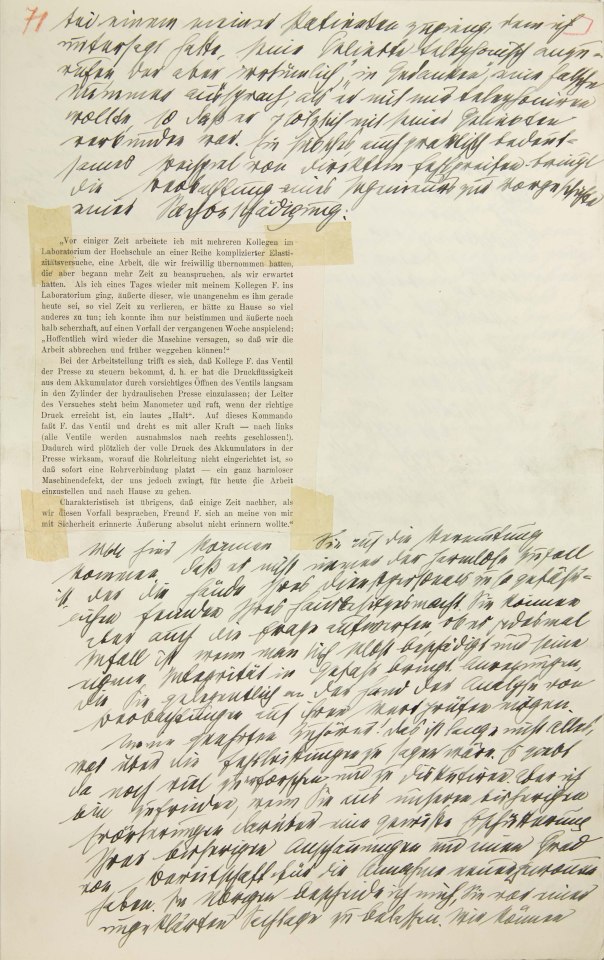 71
bei einem meiner Patienten zuging, dem ich
untersagt hatte, seine Geliebte telephonisch anzu-
rufen der aber „irrtümlich“, in Gedanken, eine falsche
Nummer aussprach, als er mit mir telephoniren
wollte so daß er plötzlich mit seiner Geliebten
verbunden war. Ein hübsches auch praktisch bedeut-
sames Beispiel von direktem Fehlgreifen bringt
die Beobachtung eines Ingenieurs zur Vorgeschichte
einer Sachbeschädigung:
„Vor einiger Zeit arbeitete ich mit mehreren Kollegen im
Laboratorium der Hochschule an einer Reihe komplizierter Elasti-
zitätsversuche, eine Arbeit, die wir freiwillig übernommen hatten,
die aber begann mehr Zeit zu beanspruchen, als wir erwartet
hatten. Als ich eines Tages wieder mit meinem Kollegen F. ins
Laboratorium ging, äußerte dieser, wie unangenehm es ihm gerade
heute sei, so viel Zeit zu verlieren, er hätte zu Hause so viel
anderes zu tun; ich konnte ihm nur beistimmen und äußerte noch
halb scherzhaft, auf einen Vorfall der vergangenen Woche anspielend:
„Hoffentlich wird wieder die Maschine versagen, so daß wir die
Arbeit abbrechen und früher weggehen können!“
Bei der Arbeitstellung trifft es sich, daß Kollege F. das Ventil
der Presse zu steuern bekommt, d. h. er hat die Druckflüssigkeit
aus dem Akkumulator durch vorsichtiges Öffnen des Ventils langsam
in den Zylinder der hydraulischen Presse einzulassen; der Leiter
des Versuches steht beim Manometer und ruft, wenn der richtige
Druck erreicht ist, ein lautes „Halt“. Auf dieses Kommando
faßt F. das Ventil und dreht es mit aller Kraft — nach links
(alle Ventile werden ausnahmslos nach rechts geschlossen!).
Dadurch wird plötzlich der volle Druck des Akkumulators in der
Presse wirksam, worauf die Rohrleitung nicht eingerichtet ist, so
daß sofort eine Rohrverbindung platzt — ein ganz harmloser
Maschinendefekt, der uns jedoch zwingt, für heute die Arbeit
einzustellen und nach Hause zu gehen.
Charakteristisch ist übrigens, daß einige Zeit nachher, als
wir diesen Vorfall besprachen, Freund F. sich an meine von mir
mit Sicherheit erinnerte Äußerung absolut nicht erinnern wollte.“
hier können Sie auf die Vermutung
kommen, daß es nicht immer der harmlose Zufall
ist der die Hände Ihres Dienstpersonals zu so gefähr-
lichen Feinden Ihres Hausbesitzes macht. Sie können
aber auch die Frage aufwerfen ob es jedesmal
Zufall ist wenn man sich selbst beschädigt und seine
eigene Integrität in Gefahr bringt. Anregungen,
die Sie gelegentlich an der Hand der Analyse von
Beobachtungen auf ihren Wert prüfen mögen.
Meine geehrten Zuhörer! Das ist lange nicht alles,
was über die Fehlleistungen zu sagen wäre. Es giebt
da noch viel zu erforschen und zu diskutiren. Aber ich
bin zufrieden, wenn Sie aus unseren bisherigen
Erörterungen darüber eine gewisse Erschütterung
Ihrer bisherigen Anschauungen und einen Grad
von Bereitschaft für die Annahme neuer gewonnen
haben. Im Übrigen bescheide ich mich, Sie vor einer
ungeklärten Sachlage zu belassen. Wir können